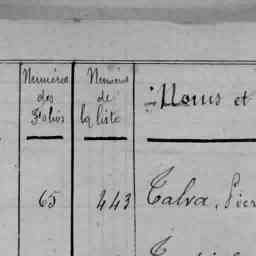 Numéros
des
Folios
Numéros
de
la liste
Noms et
65
443
Calva, Pier